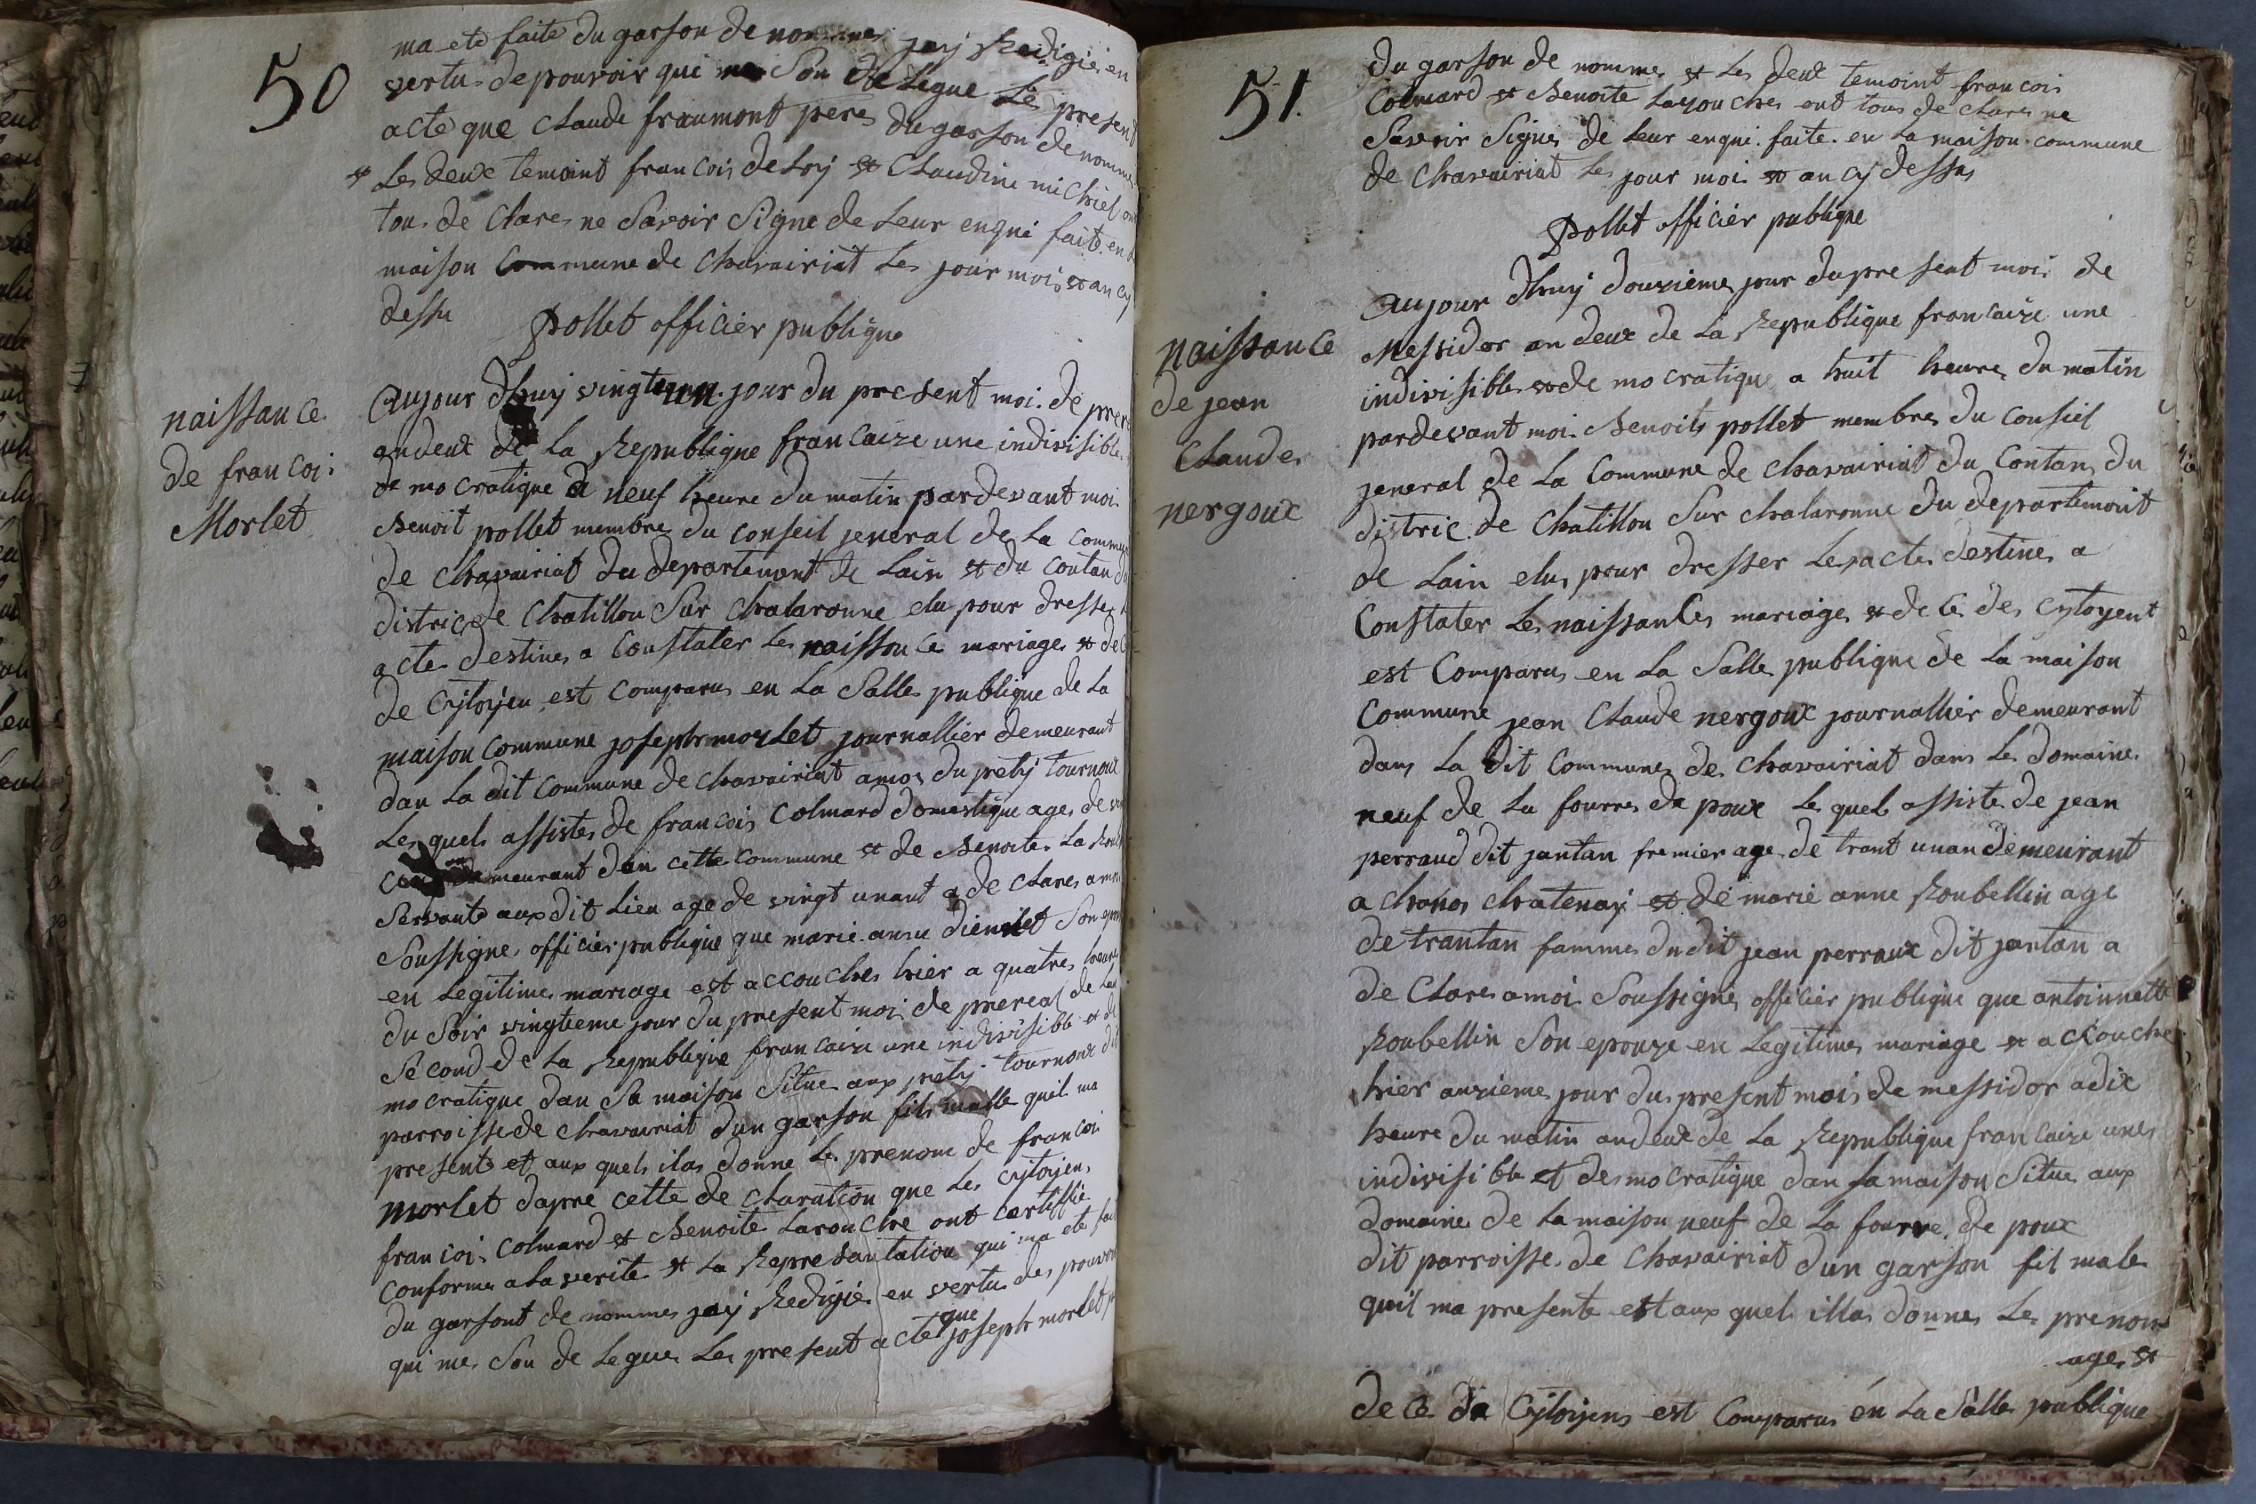 50
ma ete faite du garson de nommes jay Redigié en
vertu de pouvoir qui me Son de Legue Le present
acte que claude fraumont peres du garson de nommes
et Les deux temoint francois deloy et Claudine michiel ont
tous de Clares ne Savoir Signe de Leur enqui faite en la
maison Commune de chavairiat Les jour mois et an cy
dessu
pollet officier publique
naissance
de francoi
Morlet
aujour dhuy vingt unn jour du present moi de prer
andeux de La Republique francaize une indivisibles
de mo cratique a neuf heure du matin pardevant moi
Benoit pollet membre du conseil jeneral de La commun
de chavairiat du departement de Lain et du contan du
districe de chatillon Sur chalaronne elu pour dresser
acte destines a Constater Les naissance mariages et dec
de Cytoyen est comparus en La Salle publique de La
maison commune joseph morlet journallier demeurant
dan La dit commune de chavairiat amos du prety tournoux
Les quels assistes de francois Colmard domestique ages de
demeurant dan cette commune et de Benoite La
Servante aux dit Lieu age de vingt unant a de Clares a moi
Soussignes officier publique que marie anne diennet Son epou
en Legitimes mariage est accouches hier a quatres heure
du Soir vingtieme jour du present moi de prereal de Lan
Second de La Republique francaize une indivisible et de
mo cratique dan Sa maison Situe aux prety tournoux dit
parroisse de chavairiat dun garson fils malle quil ma
presente et aux quels ilas donne Le prenom de francoi
morlet dapre cette de claration que Les Cytoyens
francois Colmard et Benoite Larouche ont certiffié
conforme a La verite et La Representation qui ma ete fai
du garsont de nommes jay Redigié en vertu des pouvoir
qui mes Son de Legues Les present acte que joseph morlet p
51.
du garson de nommes et Les deux temoint francois
Colmard et Benoite Larouches ont tous de Clares ne
Savoir Signes de Leur enqui faite en La maison commune
de chavairiat Les jour moi et an cy dessus
pollet officier publique
naissance
de jean
Claudes
nergoux
aujour dhuy douzieme jour du present moi de
Messidor an deux de La Republique francaize une
indivisibles et de mo cratique a huit heures du matin
pardevant moi Benoits pollet membres du Conseil
jeneral de La Commune de chavairiat du Contans du
distric de chatillon Sur chalaronne du departemont
de Lain elus pour dresser Les acte destines a
Constater Les naissances mariages et de Ce des cytoyent
est Comparus en La Salle publique de La maison
Commune jean Claude nergoux journallier demeurant
dans La dit Communes de chavairiat dans Les domaine
neuf de La fourres de poux Le quels assiste de jean
perraud dit jantan fremier ages de trant unan demeurant
a chanos chatenay et de marie anne Roubellin age
de trantan fammes du dit jean perraux dit jantan a
de Clares a moi Soussignes officier publique que antoinnette
Roubellin Son epouze en Legitimes mariage et a ckouches
hier onzieme jour du present mois de messidor a dix
heure du matin andeux de La Republique francaize unes
indivisible et de mo cratique dan sa maison Situe aux
domaine de La maison neuf de La fourre de poux
dit parroisse de chavairiat dun garson fil males
quil ma presente et aux quels illas donnes Les prenom
ages et
de ce da Cytoyens est Comparus en La Salle publique